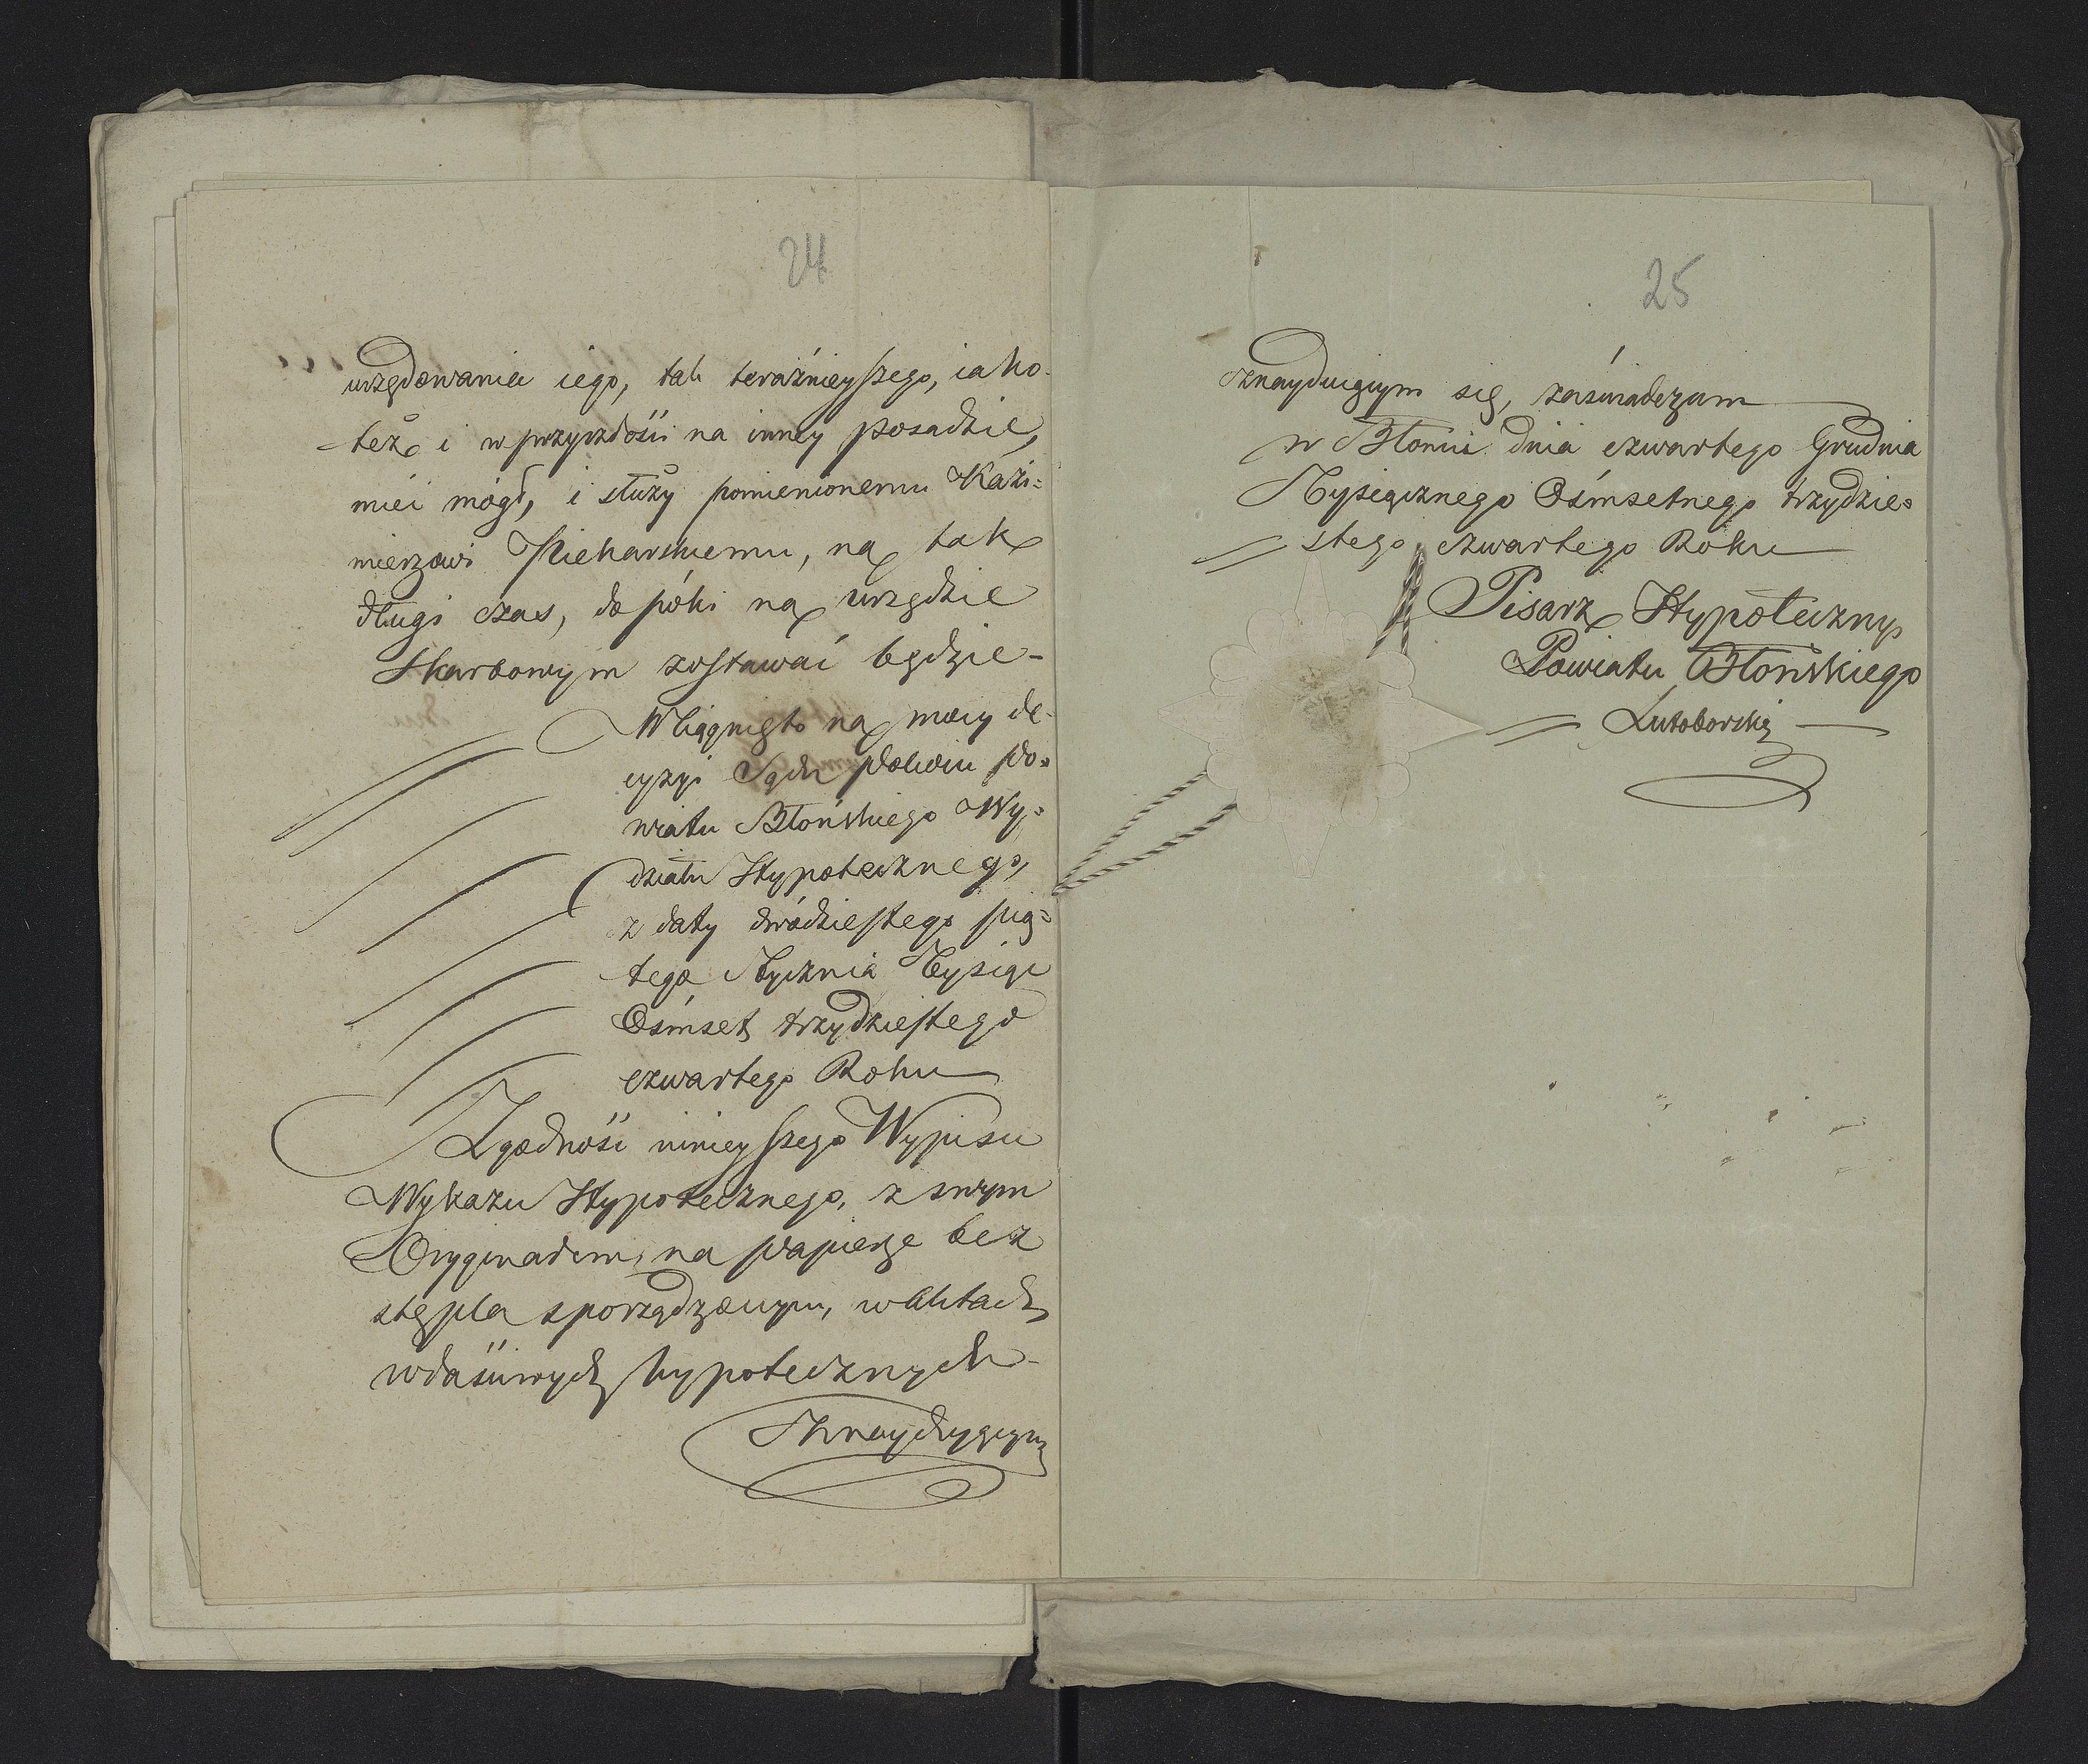 24
urzędowania iego, tak teraźnieyszego, iako-
też i w przyszłości na inney posadzie,
mieć mógł, i służy pomienionemu Kazi=
mierzowi Piekarskiemu, na tak
długi czas, do póki na urzędzie
Skarbowym zostawać będzie-
Wciągnięto na mocy de-
cyzyi Sądu Pokoiu Po=
wiatu Błońskiego Wy=
działu Hypotecznego,
z daty dwódziestego pią=
tego Stycznia Tysiąc
Ośmset trzydziestego
czwartego Roku
Zgodność ninieyszego Wypisu
Wykazu Hypotecznego, z swym
Oryginałem, na papierze bez
stępla sporządzonym, w Aktach
właściwych hypotecznych-
Znayduiącym
25
Znayduiącym się, zaświadczam
w Błoniu dnia czwartego Grudnia
Tysiącznego Ośmsetnego trzydzie=
stego czwartego Roku
Pisarz Hypoteczny
Powiatu Błońskiego
Lutoborski